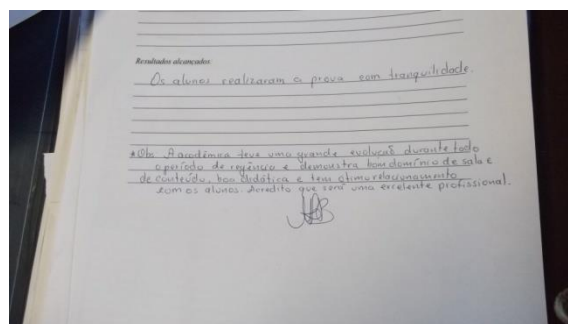 Resultados alcançados:
Os alunos realizaram a prova com tranquilidade.
*Obs: A acadêmica teve uma grande evolução durante todo
o período de regência e demonstra bom domínio de sala e
de conteúdo, boa didática e tem ótimo relacionamento
com os alunos. Acredito que será uma excelente profissional.